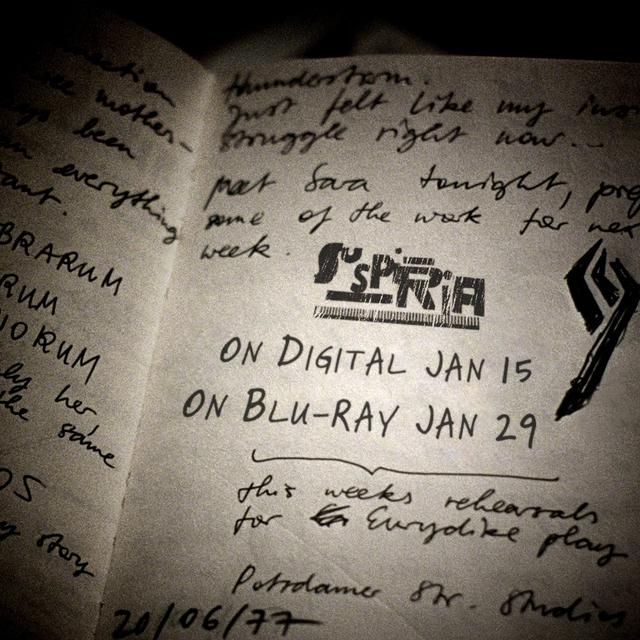 mother
been
everything
BRARUM
RUM
IORUM
her
the same
OS
story
thunderstorm.
just felt like my
struggle right now...
meet Sara tonight,
some of the work for
week.
SUSPIRIA
ON DIGITAL JAN 15
ON BLU-RAY JAN 29
this weeks rehearsals
for Eurydike play
Potsdamer Str. Studios
20/06/77